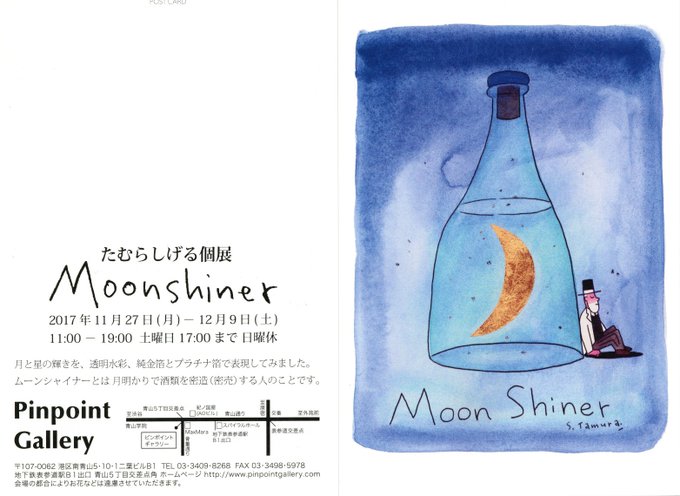 POST CARD
たむらしげる個展
Moonshiner
2017年11月27日(月)ー12月9日(土)
11:00 ー 19:00 土曜日17:00まで 日曜休
月と星の輝きを、透明水彩、純金箔とプラチナ箔で表現してみました。
ムーンシャイナーとは 月明かりで酒類を密造(密売)する人のことです。
Pinpoint
Gallery
青山5丁目交差点
紀ノ国屋
(AOビル)
青山通り
交番
至渋谷
至外苑前
青山学院
MaxMara
スパイラルホール
地下鉄表参道駅
B1出口
表参道交差点
ピンポイント
ギャラリー
骨董通り
〒107-0062 港区南青山5-10-1二葉ビルB1 TEL 03-3409-8268 FAX 03-3498-5978
地下鉄表参道駅B1出口 青山5丁目交差点角 ホームページ http://www.pinpointgallery.com
会場の都合によりお花などは遠慮させていただきます。
Moon Shiner
S. Tamura.